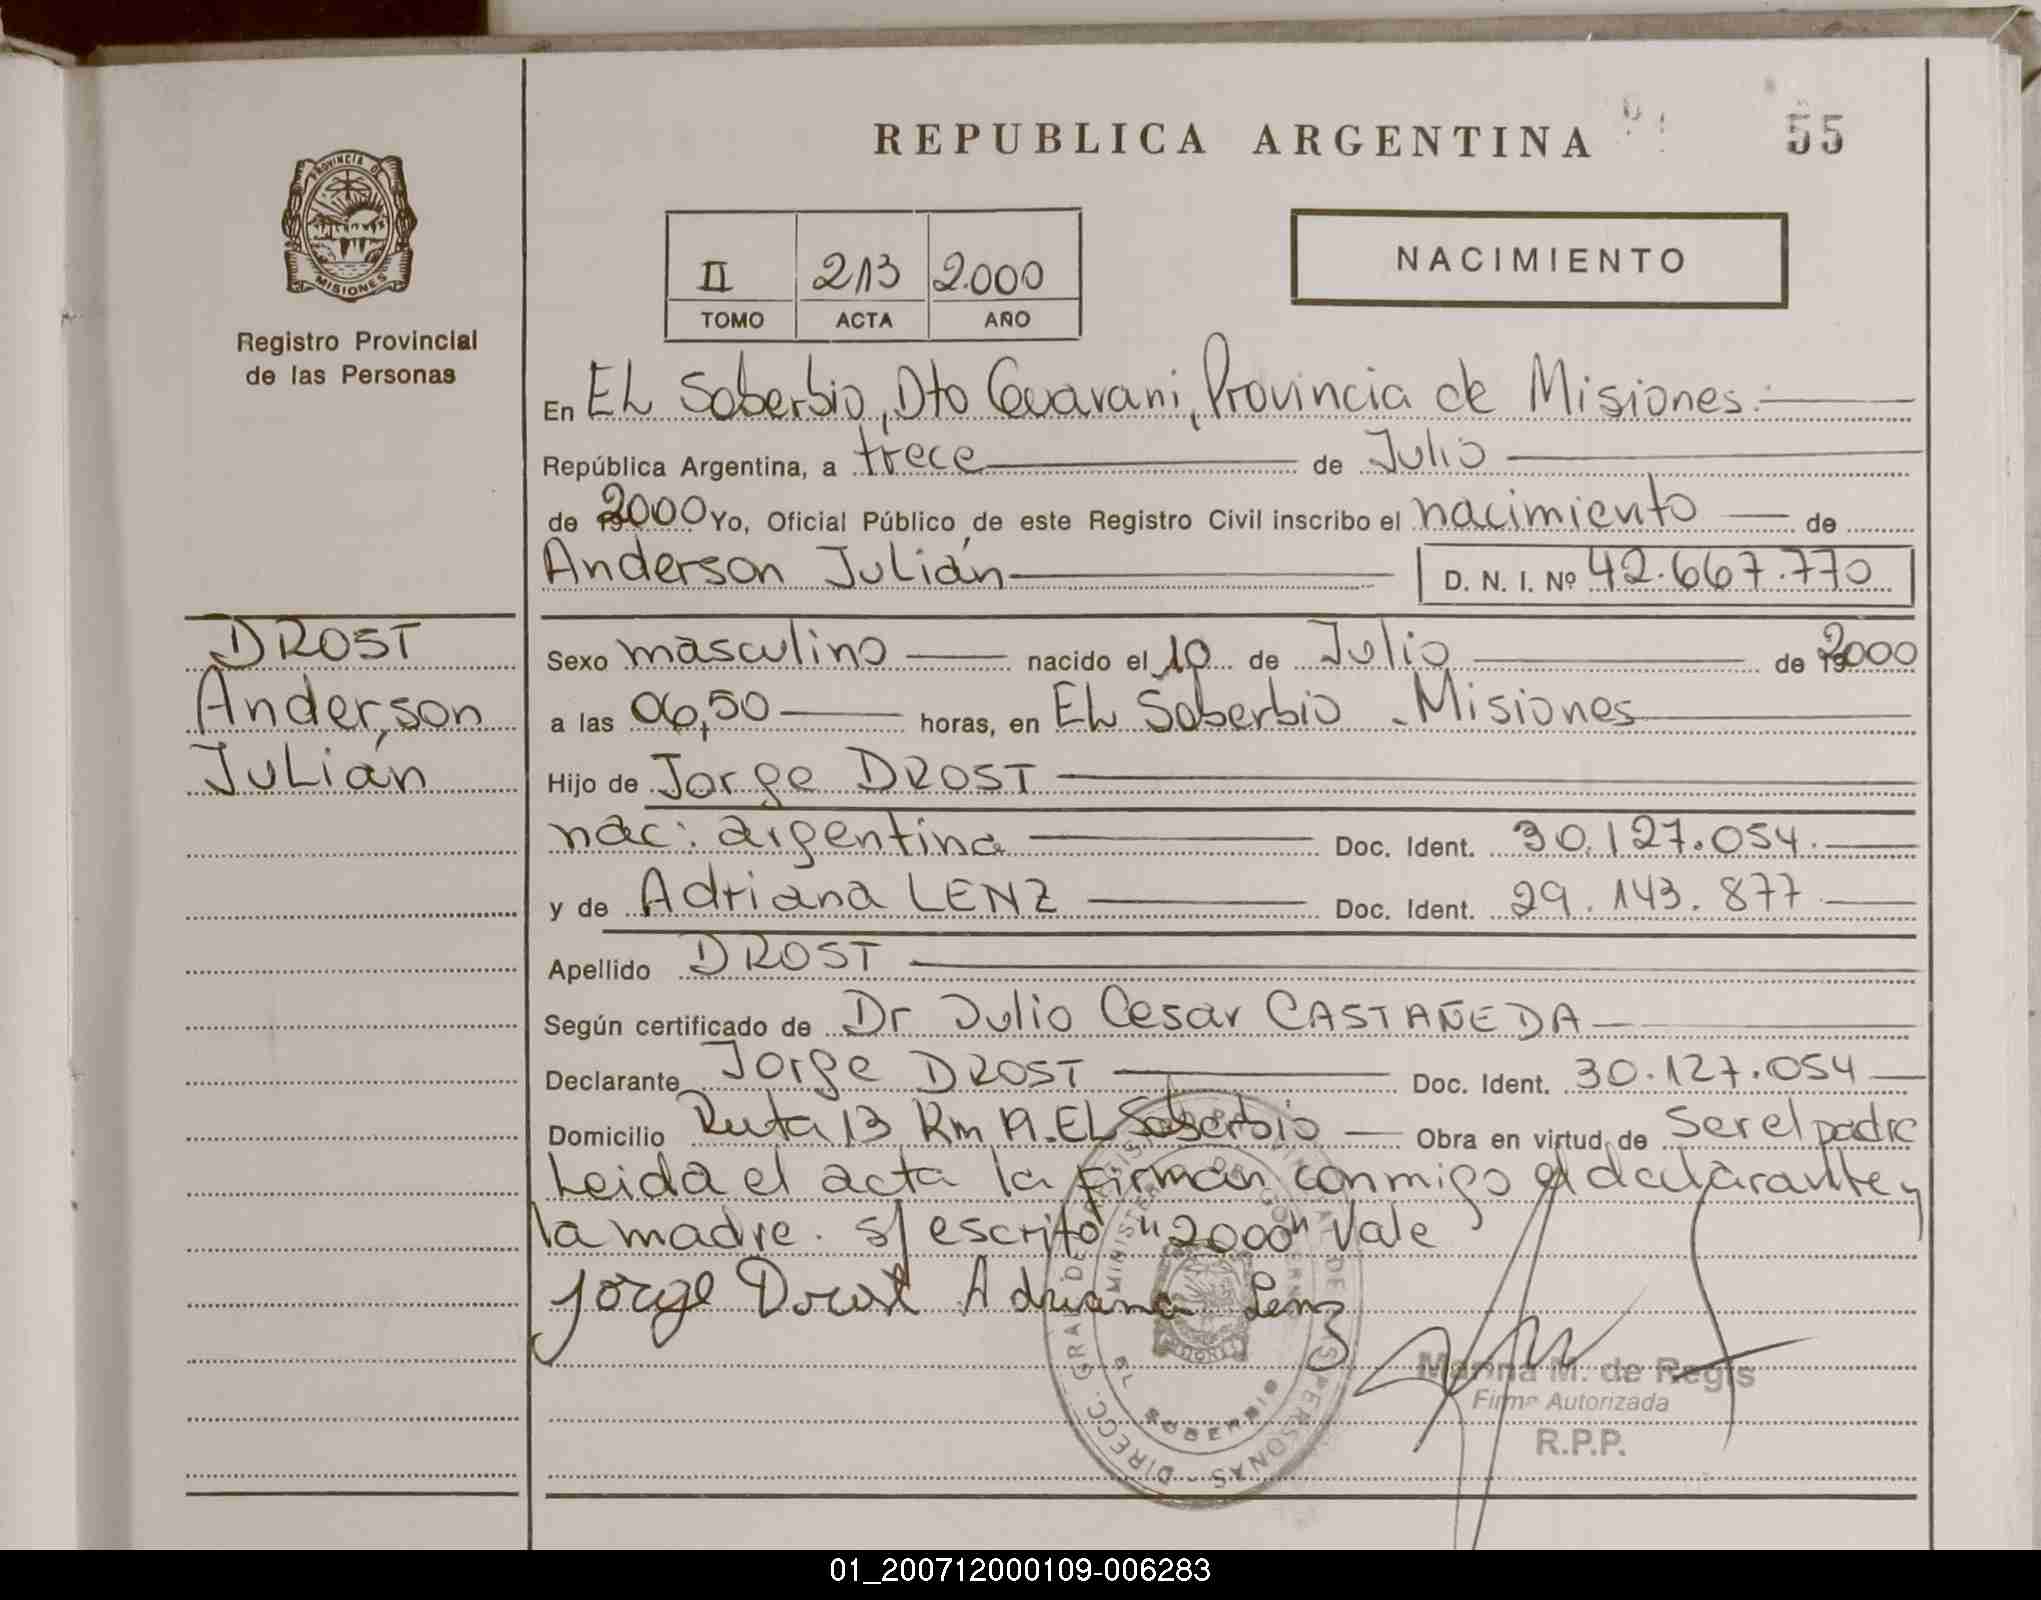 REPUBLICA ARGENTINA
55
PROVINCIA DE
MISIONES
Registro Provincial
de las Personas
NACIMIENTO
II 213 2.000
TOMO ACTA AÑO
En EL Soberbio, Dto Guarani, Provincia de Misiones.
República Argentina, a trece de Julio
de 2000 Yo, Oficial Público de este Registro Civil inscribo el nacimiento de
Anderson Julián D. N. I. Nº 42.667.770
DROST
Anderson
Julián
Sexo masculino nacido el 10 de Julio de 2000
a las 06,50 horas, en EL Soberbio - Misiones
Hijo de Jorge DROST
nac: argentina Doc. Ident. 30.127.054.
y de Adriana LENZ Doc. Ident. 29.143.877
Apellido DROST
Según certificado de Dr Julio Cesar CASTAÑEDA
Declarante Jorge DROST Doc. Ident. 30.127.054
Domicilio Ruta 13 Km 19. EL Soberbio Obra en virtud de ser el padre
Leida el acta la firman conmigo el declarante y
la madre. s/ escrito "2000" Vale
Jorge Drost Adriana Lenz
EL SOBERBIO
Marina M. de Regis
Firma Autorizada
R.P.P.
01_200712000109-006283